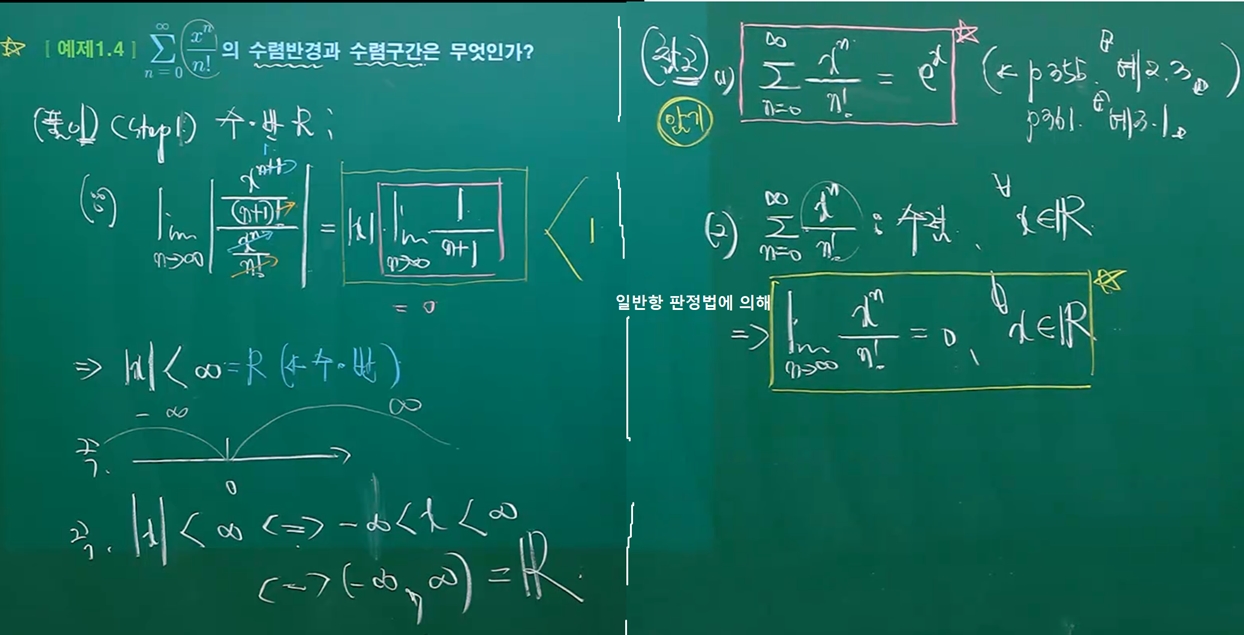 [ 예제1.4 ] \sum_{n=0}^{\infty} \frac{x^n}{n!} 의 수렴반경과 수렴구간은 무엇인가?
(풀이) (step1.) 수·반 R ;
\lim_{n→∞} | \frac{\frac{x^{n+1}}{(n+1)!}}{\frac{x^n}{n!}} | = |x| \lim_{n→∞} \frac{1}{n+1} < 1
= 0
=> |x| < ∞ = R (← 수·반)
- ∞ ∞
0
즉, |x| < ∞ <=> -∞ < x < ∞
<=> (-∞, ∞) = ℝ.
(참고2) (1) \sum_{n=0}^{\infty} \frac{x^n}{n!} = e^x (← p355. 예2.3.)
암기
p361. 예3.1.
(2) \sum_{n=0}^{\infty} \frac{x^n}{n!} : 수렴, ∀ x∈ℝ.
일반항 판정법에 의해
=> \lim_{n→∞} \frac{x^n}{n!} = 0, ∀ x∈ℝ